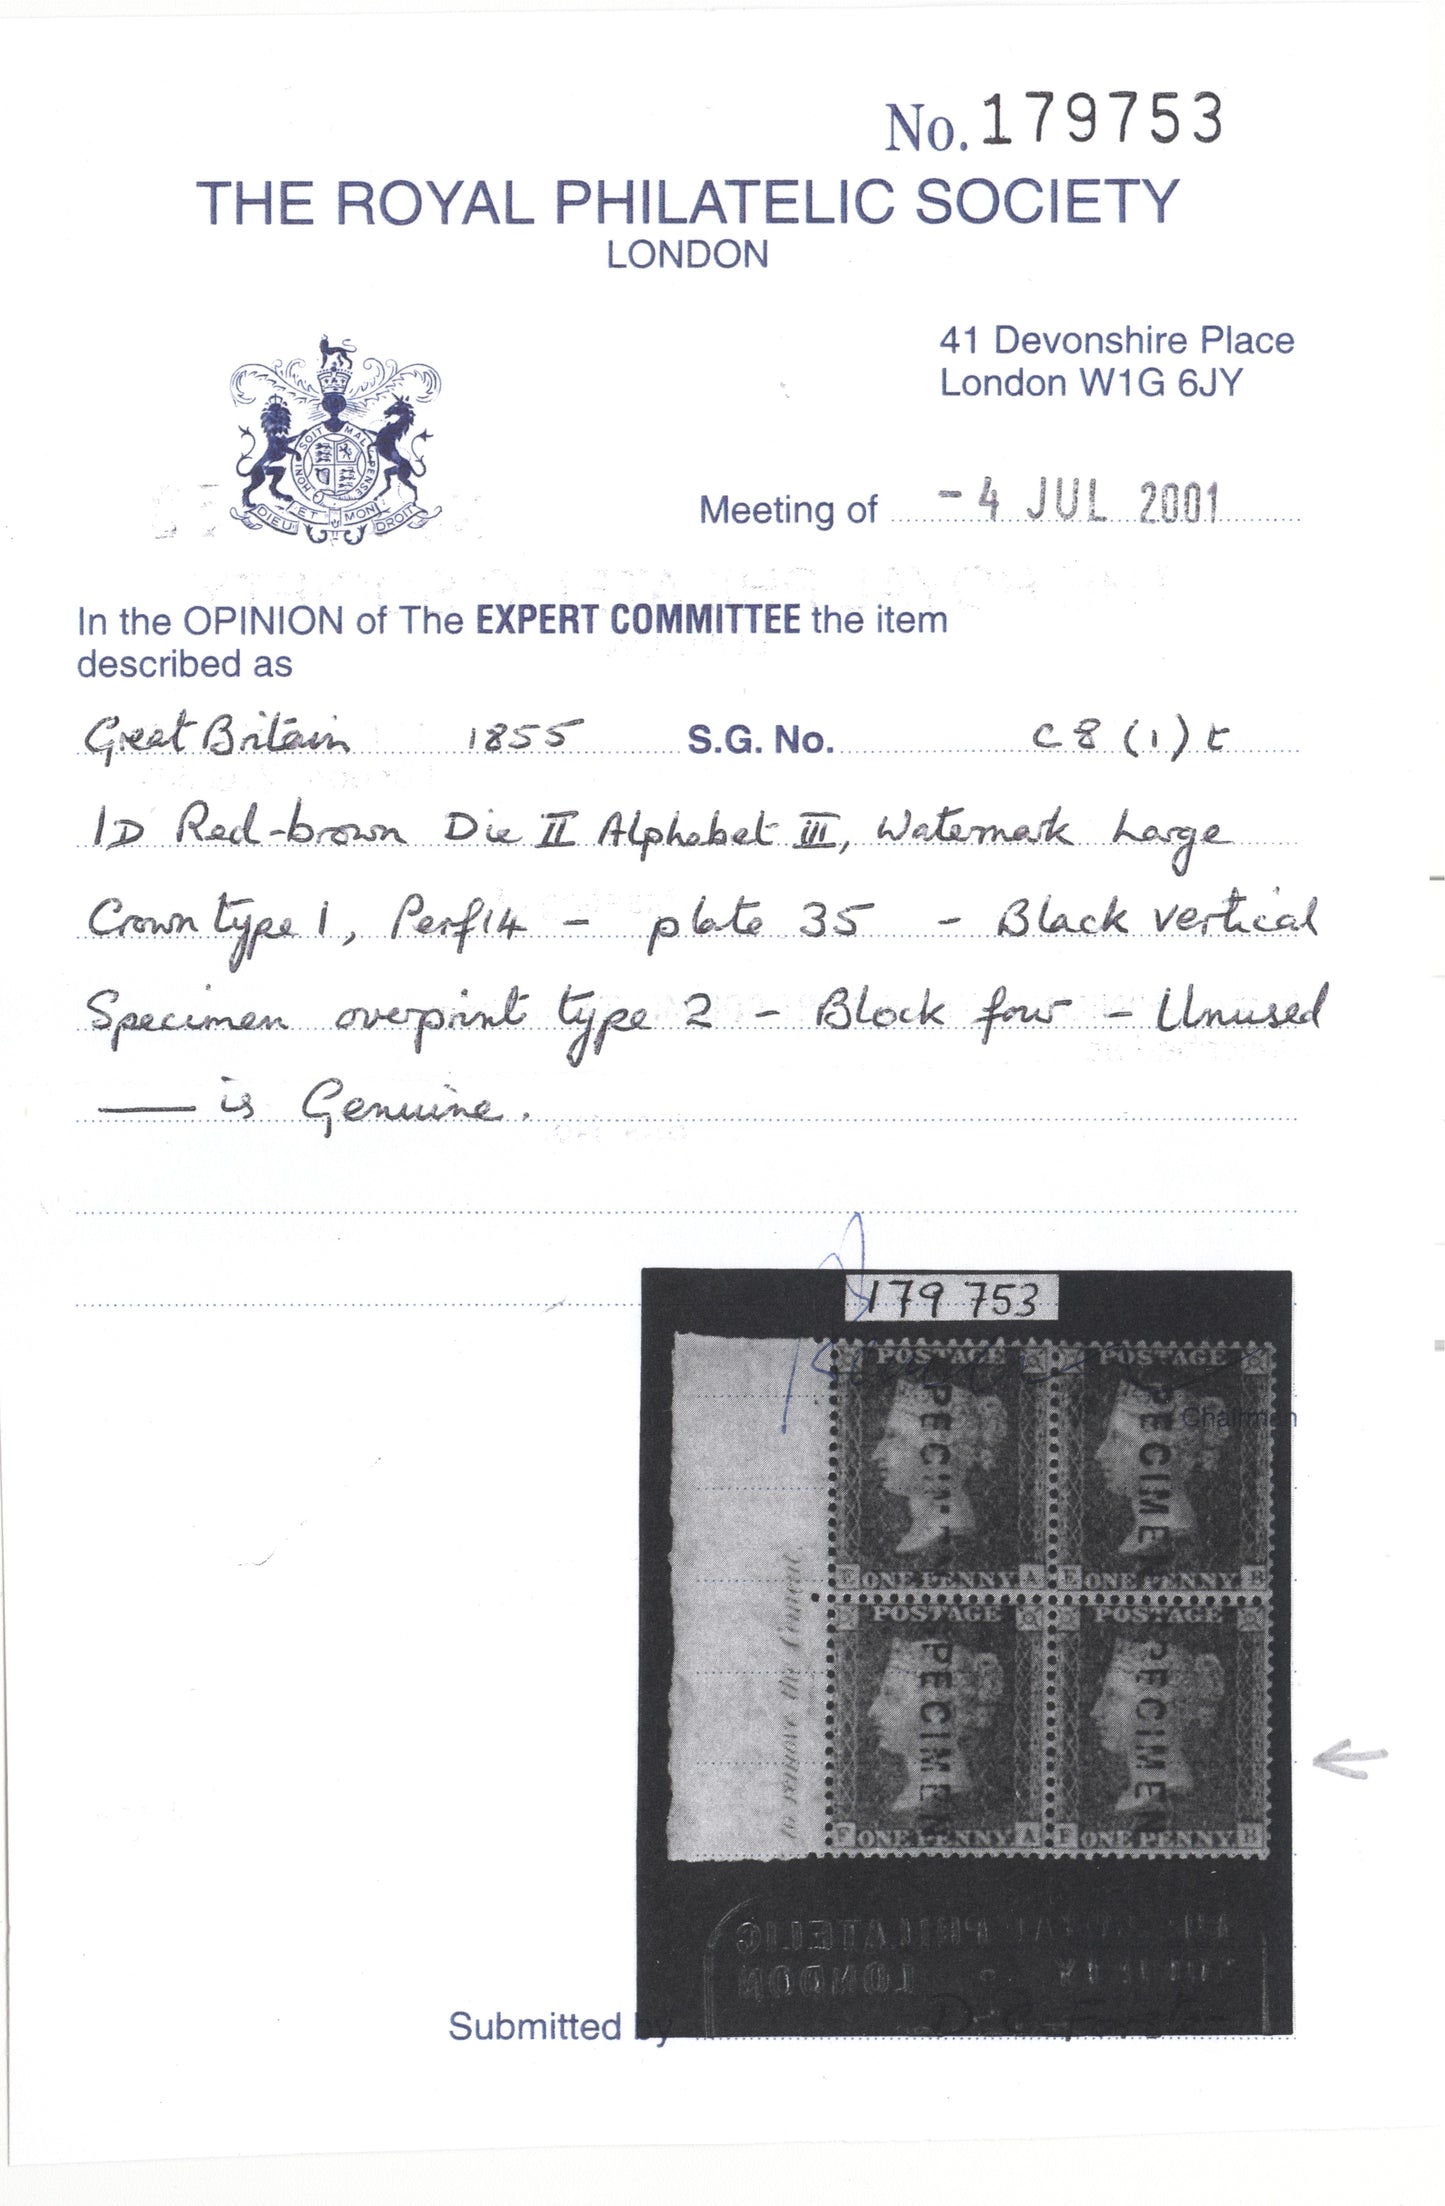 No. 179753
THE ROYAL PHILATELIC SOCIETY
LONDON
41 Devonshire Place
London W1G 6JY
HONI SOIT MAL PENSE
DIEU ET MON DROIT
Meeting of - 4 JUL 2001
In the OPINION of The EXPERT COMMITTEE the item
described as
Great Britain 1855 S.G. No. C8(1)t
1D Red-brown Die II Alphabet III, Watermark Large
Crown type 1, Perf 14 - plate 35 - Black vertical
Specimen overprint type 2 - Block four - Unused
— is Genuine.
179 753
POSTAGE POSTAGE
PECIM PECIME
Chairman
E ONE PENNY A E ONE PENNY B
POSTAGE POSTAGE
PECIMEN PECIMEN
to remove the Cement
F ONE PENNY A F ONE PENNY B
PHILATELIC
LONDON
Submitted by